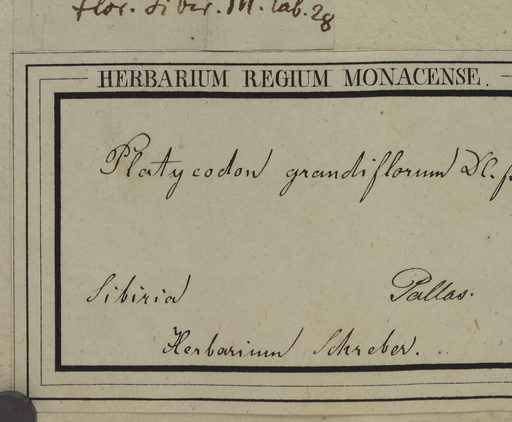 flor. Siber. III. tab. 28
HERBARIUM REGIUM MONACENSE.
Platycodon grandiflorum DC. f
Sibiria Pallas.
Herbarium Schreber.